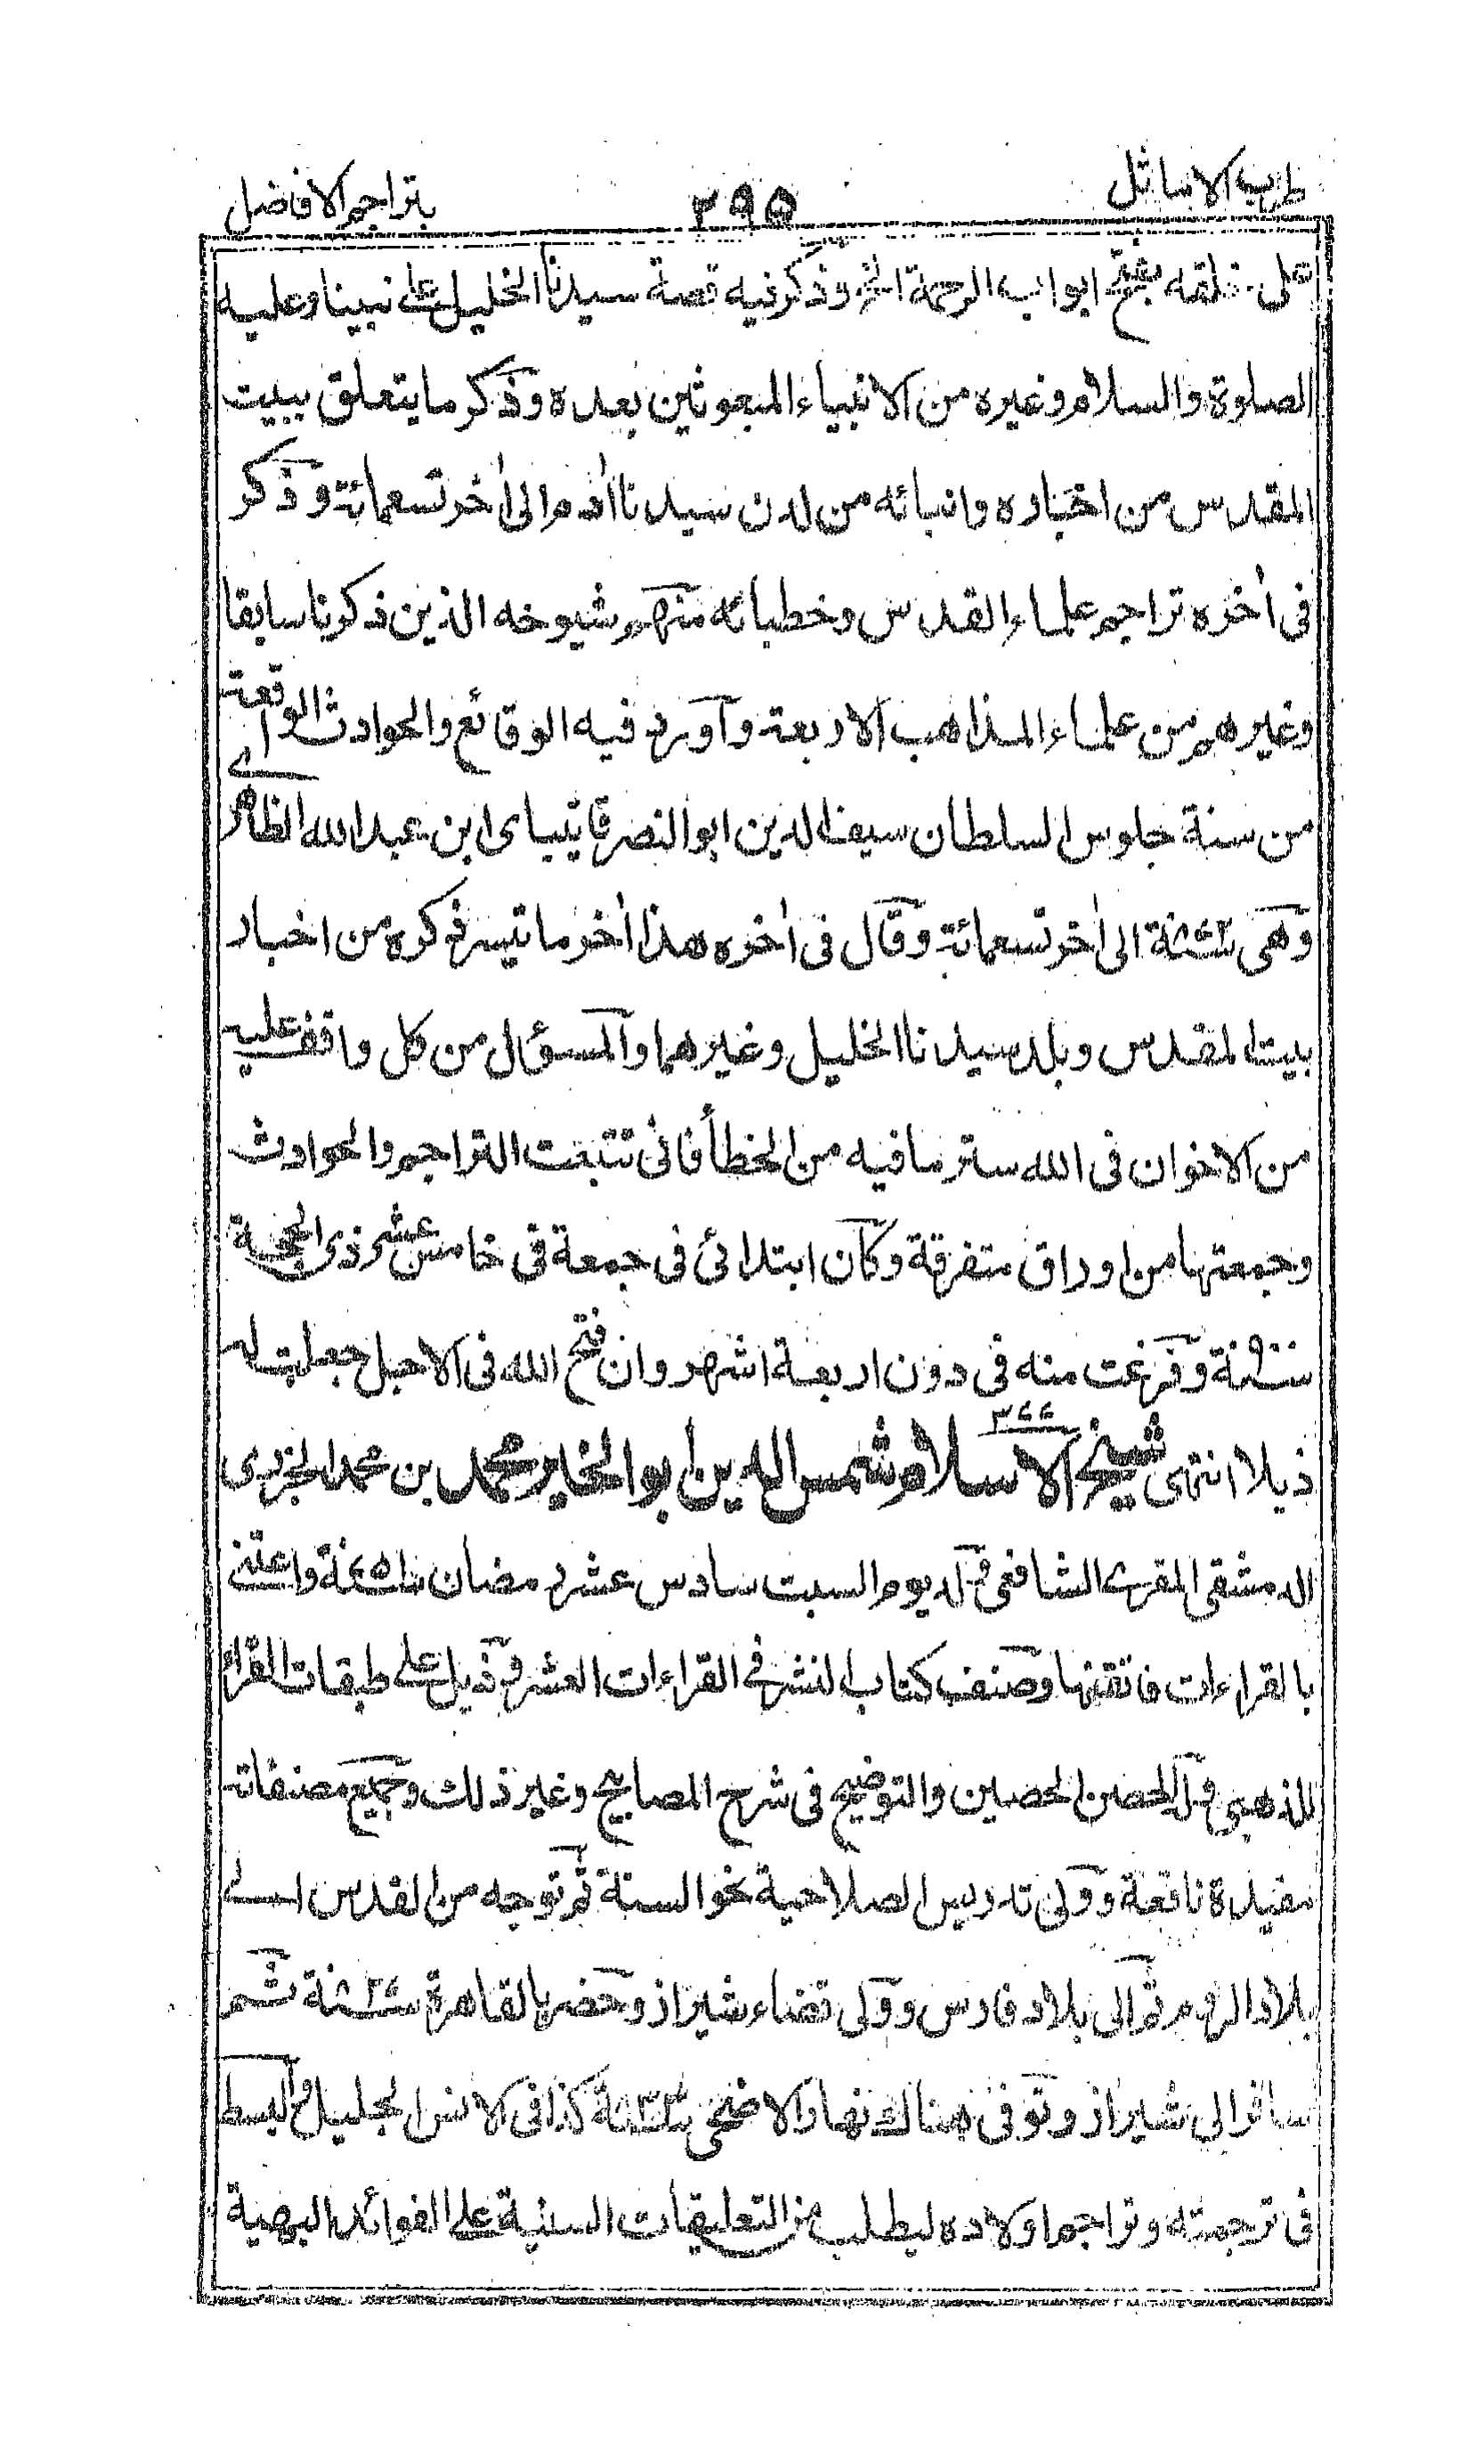 طرب الاماثل ٢٩٥ بتراجم الافاضل
على خلقه بفتح ابواب الرحمة الخ وذكر فيه قصة سيدنا الخليل على نبينا وعليه
الصلوة والسلام وغيره من الانبياء المبعوثين بعده وذكر ما يتعلق ببيت
المقدس من اخباره وانبائه من لدن سيدنا أدم الى أخر تسعمائة وذكر
فى أخره تراجم علماء القدس وخطبائه منهم شيوخه الذين ذكرنا سابقا
وغيرهم من علماء المذاهب الاربعة وآورد فيه الوقائع والحوادث الواقعة
من سنة جلوس السلطان سيف الدين ابو النصر قايتباى ابن عبد الله الظاهرى
وهى سنة ٨٧٢ الى أخر تسعمائة وقال فى أخره هذا أخر ما تيسر ذكره من اخبار
بيت المقدس وبلد سيدنا الخليل وغيرهما والمسؤال من كل واقف عليه
من الاخوان فى الله ستر ما فيه من الخطأ فانى تتبعت التراجم والحوادث
وجمعتها من اوراق متفرقة وكان ابتدائى فى جمعة فى خامس عشر ذى الحجة
سنة ٩٠٠ وفرغت منه فى دون اربعة اشهر وان فتح الله فى الاجل جعلت له
ذيلا انتهى شيخ الاسلام شمس الدين ابو الخير محمد بن محمد الجزرى ٣٦٦
الدمشقى المقرى الشافعى ولد يوم السبت سادس عشر رمضان سنة ٧٥١ واعتنى
بالقراءات فاتقنها وصنف كتاب النشر فى القراءات العشر وذيل على طبقات القراء
للذهبى وله الحصن الحصين والتوضيح فى شرح المصابيح وغير ذلك وجميع مصنفاته
مفيدة نافعة وولى تدريس الصلاحية نحو السنة ثم توجه من القدس الى
بلاد الروم ثم الى بلاد فارس وولى قضاء شيراز وحضر بالقاهرة سنة ٨٢٧ ثم
سافر الى شيراز وتوفى هناك نهار الاضحى سنة ٨٣٣ كذا فى الانس الجليل والبسط
فى ترجمته وتراجم اولاده ليطلب من التعليقات السنية على الفوائد البهية